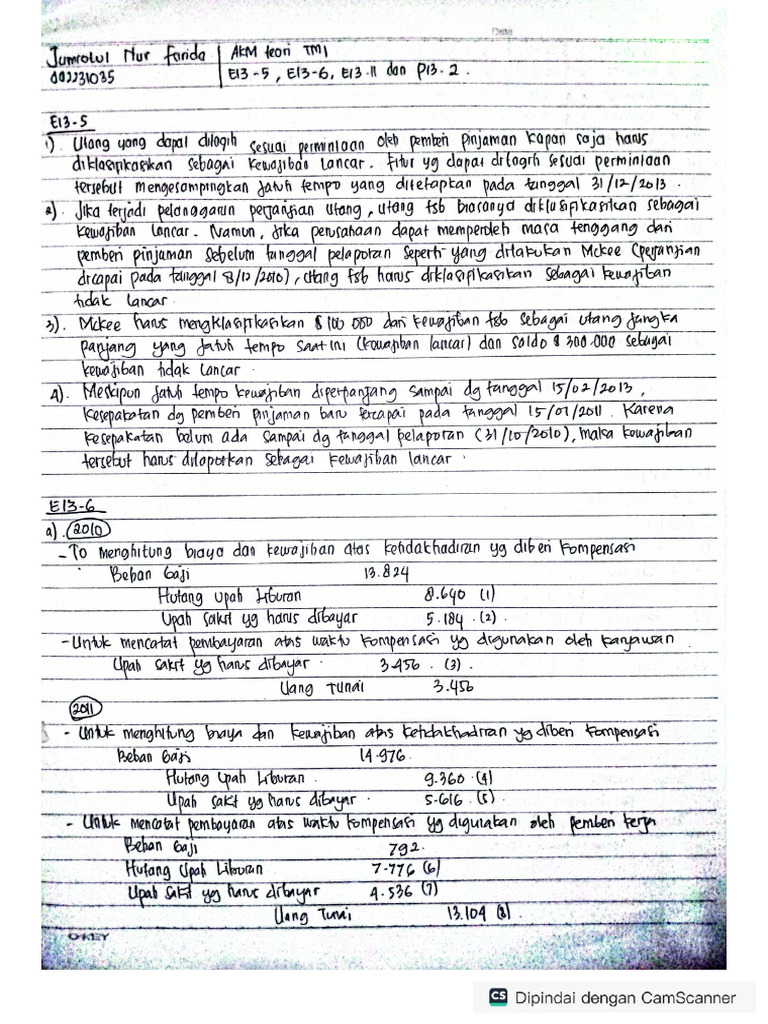 Date
Jumrotul Nur Farida | AKM teori TM1
042231035 | E13-5, E13-6, E13.11 dan P13.2.
E13-5
1). Utang yang dapat ditagih sesuai permintaan oleh pemberi pinjaman kapan saja harus
diklasifikasikan sebagai Kewajiban Lancar. Fitur yg dapat ditagih sesuai permintaan
tersebut mengesampingkan jatuh tempo yang ditetapkan pada tanggal 31/12/2013.
2). Jika terjadi pelanggaran perjanjian utang, utang tsb biasanya diklasifikasikan sebagai
Kewajiban Lancar. Namun, jika perusahaan dapat memperoleh masa tenggang dari
pemberi pinjaman sebelum tanggal pelaporan seperti yang dilakukan Mckee (perjanjian
dicapai pada tanggal 8/12/2010), utang tsb harus diklasifikasikan sebagai kewajiban
tidak lancar.
3). Mckee harus mengklasifikasikan $ 100 000 dari kewajiban tsb sebagai utang jangka
panjang yang jatuh tempo saat ini (kewajiban lancar) dan saldo $ 300.000 sebagai
kewajiban tidak lancar.
4). Meskipun jatuh tempo kewajiban diperpanjang sampai dg tanggal 15/02/2013,
kesepakatan dg pemberi pinjaman baru tercapai pada tanggal 15/01/2011. Karena
kesepakatan belum ada sampai dg tanggal pelaporan (31/10/2010), maka kewajiban
tersebut harus dilaporkan sebagai kewajiban lancar.
E13-6
a). 2010
- To menghitung biaya dan kewajiban atas ketidakhadiran yg diberi kompensasi
Beban Gaji 13.824
Hutang upah Liburan 8.640 (1)
Upah sakit yg harus dibayar 5.184 (2).
- Untuk mencatat pembayaran atas waktu kompensasi yg digunakan oleh karyawan.
Upah sakit yg harus dibayar. 3.456. (3).
Uang Tunai 3.456
2011
- Untuk menghitung biaya dan kewajiban atas ketidakhadiran yg diberi kompensasi
Beban Gaji 14.976.
Hutang Upah Liburan. 9.360 (4)
Upah sakit yg harus dibayar. 5.616 (5).
- Untuk mencatat pembayaran atas waktu kompensasi yg digunakan oleh pemberi kerja
Beban Gaji 792.
Hutang Upah Liburan 7.776 (6)
Upah sakit yg harus dibayar 4.536 (7)
Uang Tunai 13.104 (8).
O-KEY
CS Dipindai dengan CamScanner